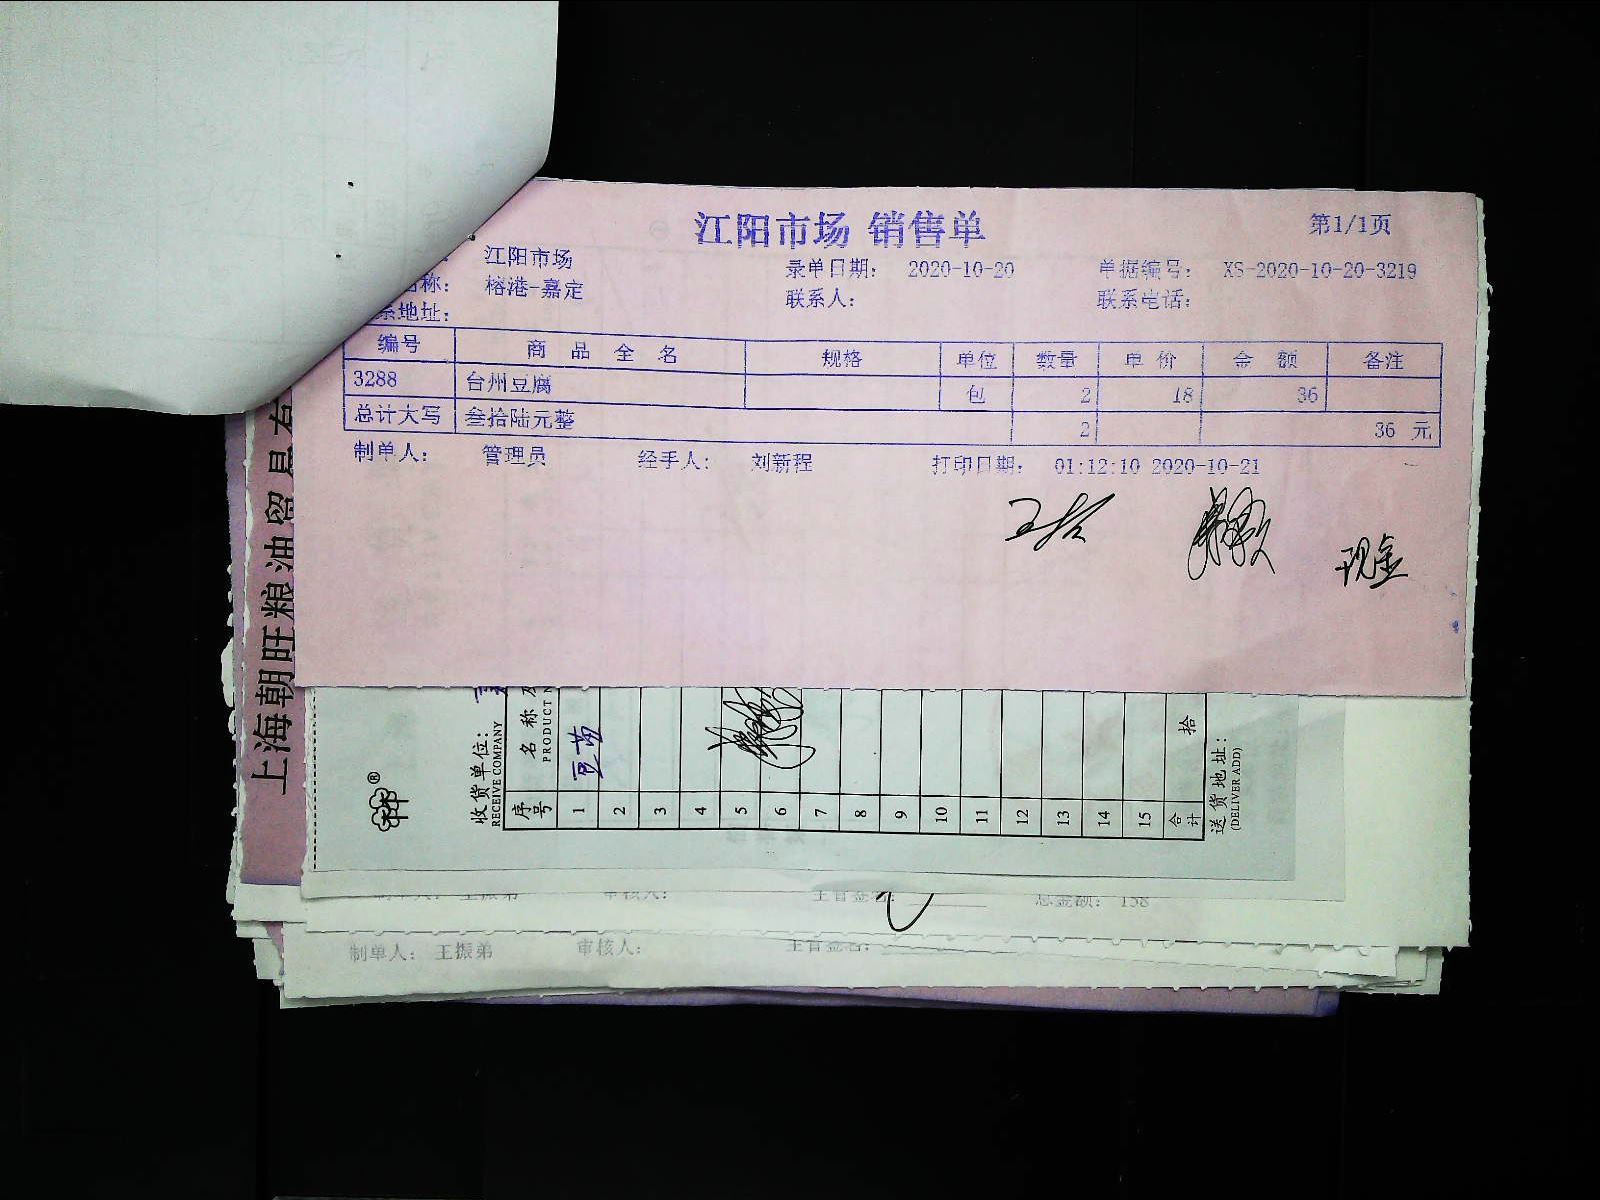 江阳市场 销售单
第1/1页
江阳市场
录单日期： 2020-10-20
单据编号： XS-2020-10-20-3219
名称： 榕港-嘉定
联系人：
联系电话：
系地址：
编号 商品全名 规格 单位 数量 单价 金额 备注
3288 台州豆腐 包 2 18 36
总计大写 叁拾陆元整 2 36 元
制单人： 管理员 经手人： 刘新程 打印日期： 01:12:10 2020-10-21
现金
上海朝旺粮油贸易有
收货单位：
RECEIVE COMPANY
序号 名称及
PRODUCT N
1 豆苗
2
3
4
5
6
7
8
9
10
11
12
13
14
15
合计 拾
送货地址：
(DELIVER ADD)
制单人： 王振弟 审核人： 主管签名： 总金额： 138
制单人： 王振弟 审核人： 主管签名：